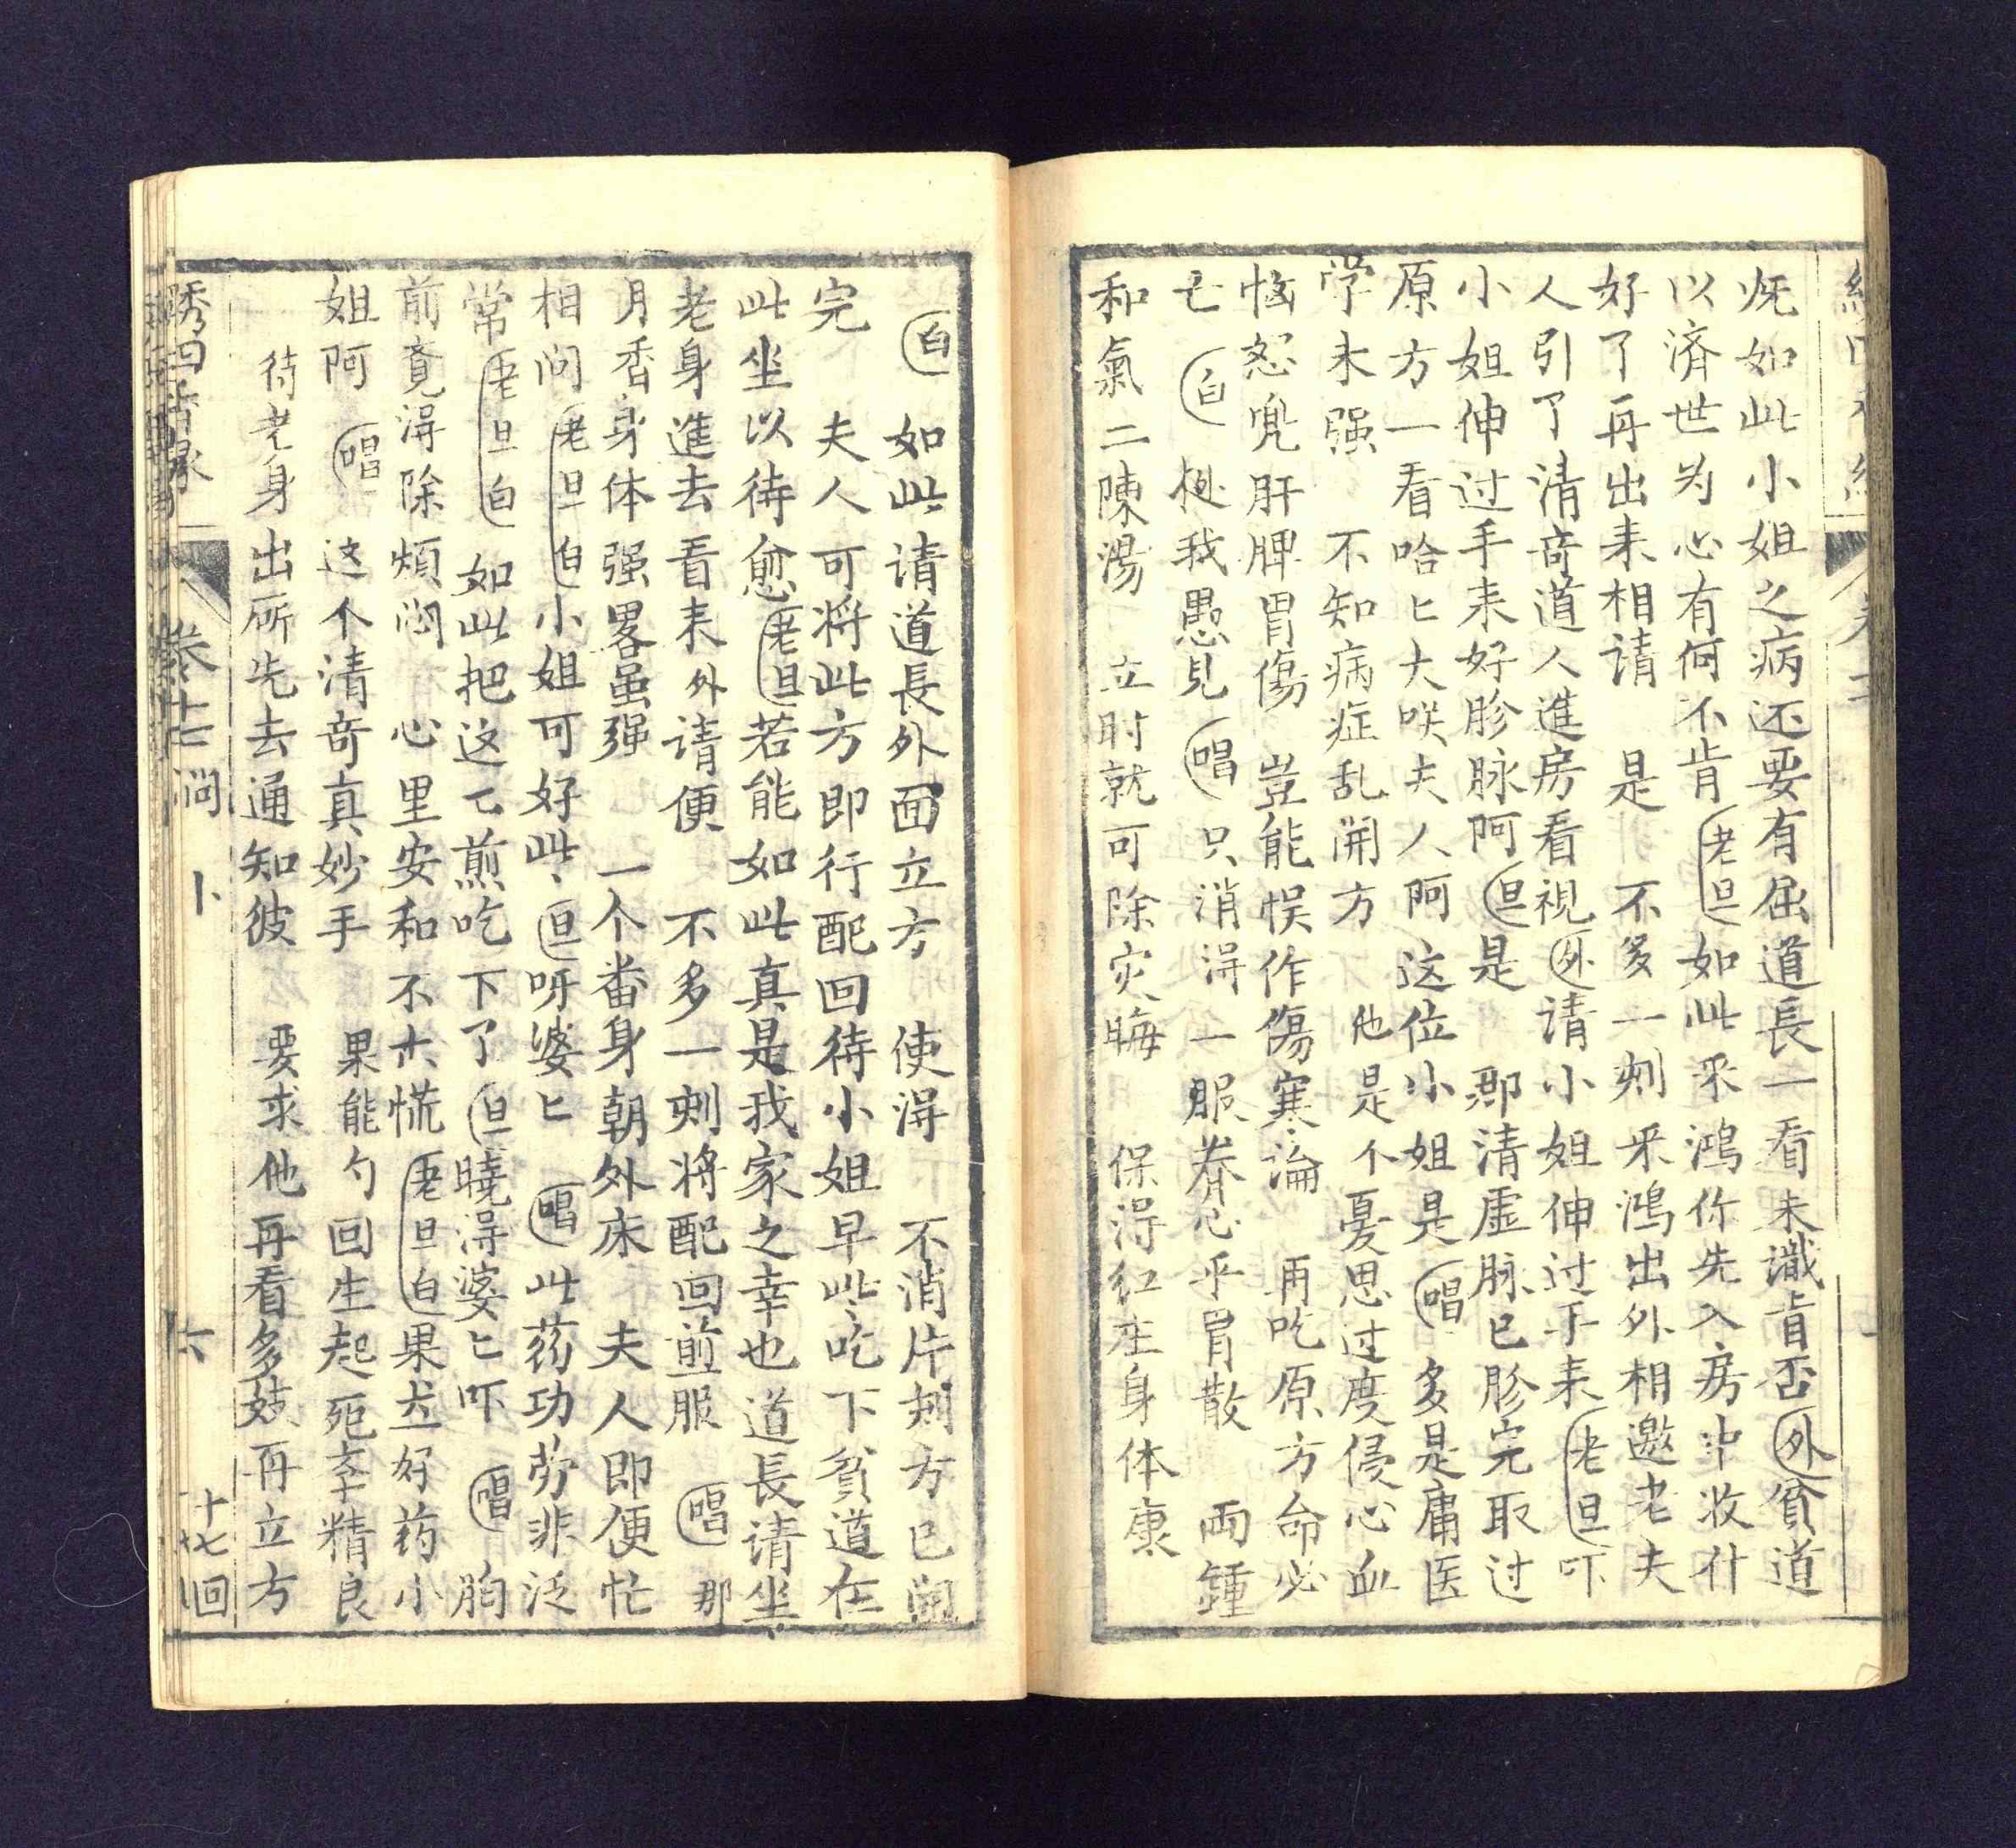 旣如此小姐之病还要有屈道長一看未識肯否外貧道
以济世为心有何不肯老旦如此采鴻你先入房中收什
好了再出来相請　是　不多一刻采鴻出外相邀老夫
人引了清奇道人進房看視外请小姐伸过手来老旦吓
小姐伸过手来好胗脉阿旦是　那清虛脉已胗完取过
原方一看哈匕大咲夫人阿这位小姐是唱多是庸医
学未强　不知病症乱開方　他是个憂思过度侵心血
恼怒兜肝脾胃傷　豈能悮作傷寒論　再吃原方命必
亡　白　挻我愚見唱只消淂一服養心平胃散　両鍾
和氣二陳湯　立时就可除灾晦　保淂红庄身体康
白　如此请道長外面立方　使淂　不消片刻方已開
完　夫人可将此方即行配回待小姐早些吃下貧道在
此坐以待愈老旦若能如此真是我家之幸也道長请坐
老身進去看来外请便　不多一刻将配回煎服　唱　那
月香身体强畧虽强　一个番身朝外床　夫人即便忙
相问老旦白小姐可好些旦呀婆匕　唱　此药功劳非泛
常老旦白如此把这乙煎吃下了旦曉淂婆匕吓　唱　胸
前竟淂除煩闷　心里安和不大慌老旦白果尤好药小
姐阿　唱　这个清奇真妙手　果能勺回生起死李精良
待老身出厛先去通知彼　要求他再看多妓再立方
绣四香缘　卷十七　词　卜　六　十七回